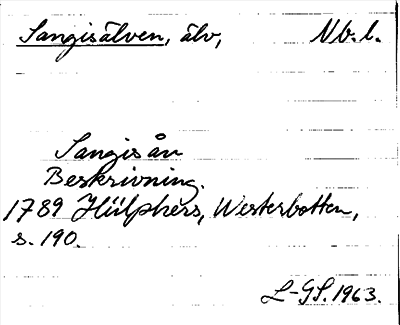 Sangisälven, älv, Nb.l.
Sangis ån
Beskrivning.
1789 Hülphers, Westerbotten,
s. 190.
L-GS. 1963.